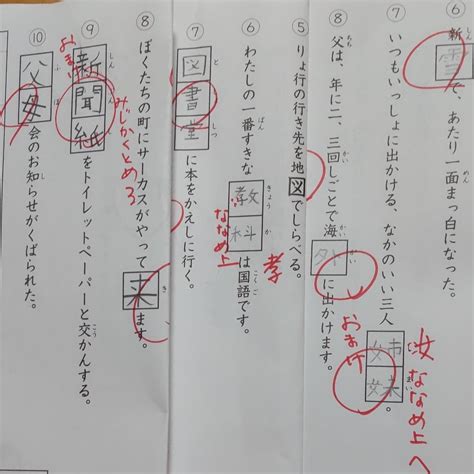 ⑥ 新雪で、あたり一面まっ白になった。
⑦ いつもいっしょに出かける、なかのいい三人姉妹。
ななめ上へ
おまけ
⑧ 父は、年に二、三回しごとで海外に出かけます。
⑤ りょ行の行き先を地図でしらべる。
⑥ わたしの一番すきな教科は国語です。
孝
ななめ上
⑦ 図書室に本をかえしに行く。
⑧ ぼくたちの町にサーカスがやって来ます。
みじかくとめろ
⑨ 新聞紙をトイレットペーパーと交かんする。
おまけ
⑩ 父母会のお知らせがくばられた。